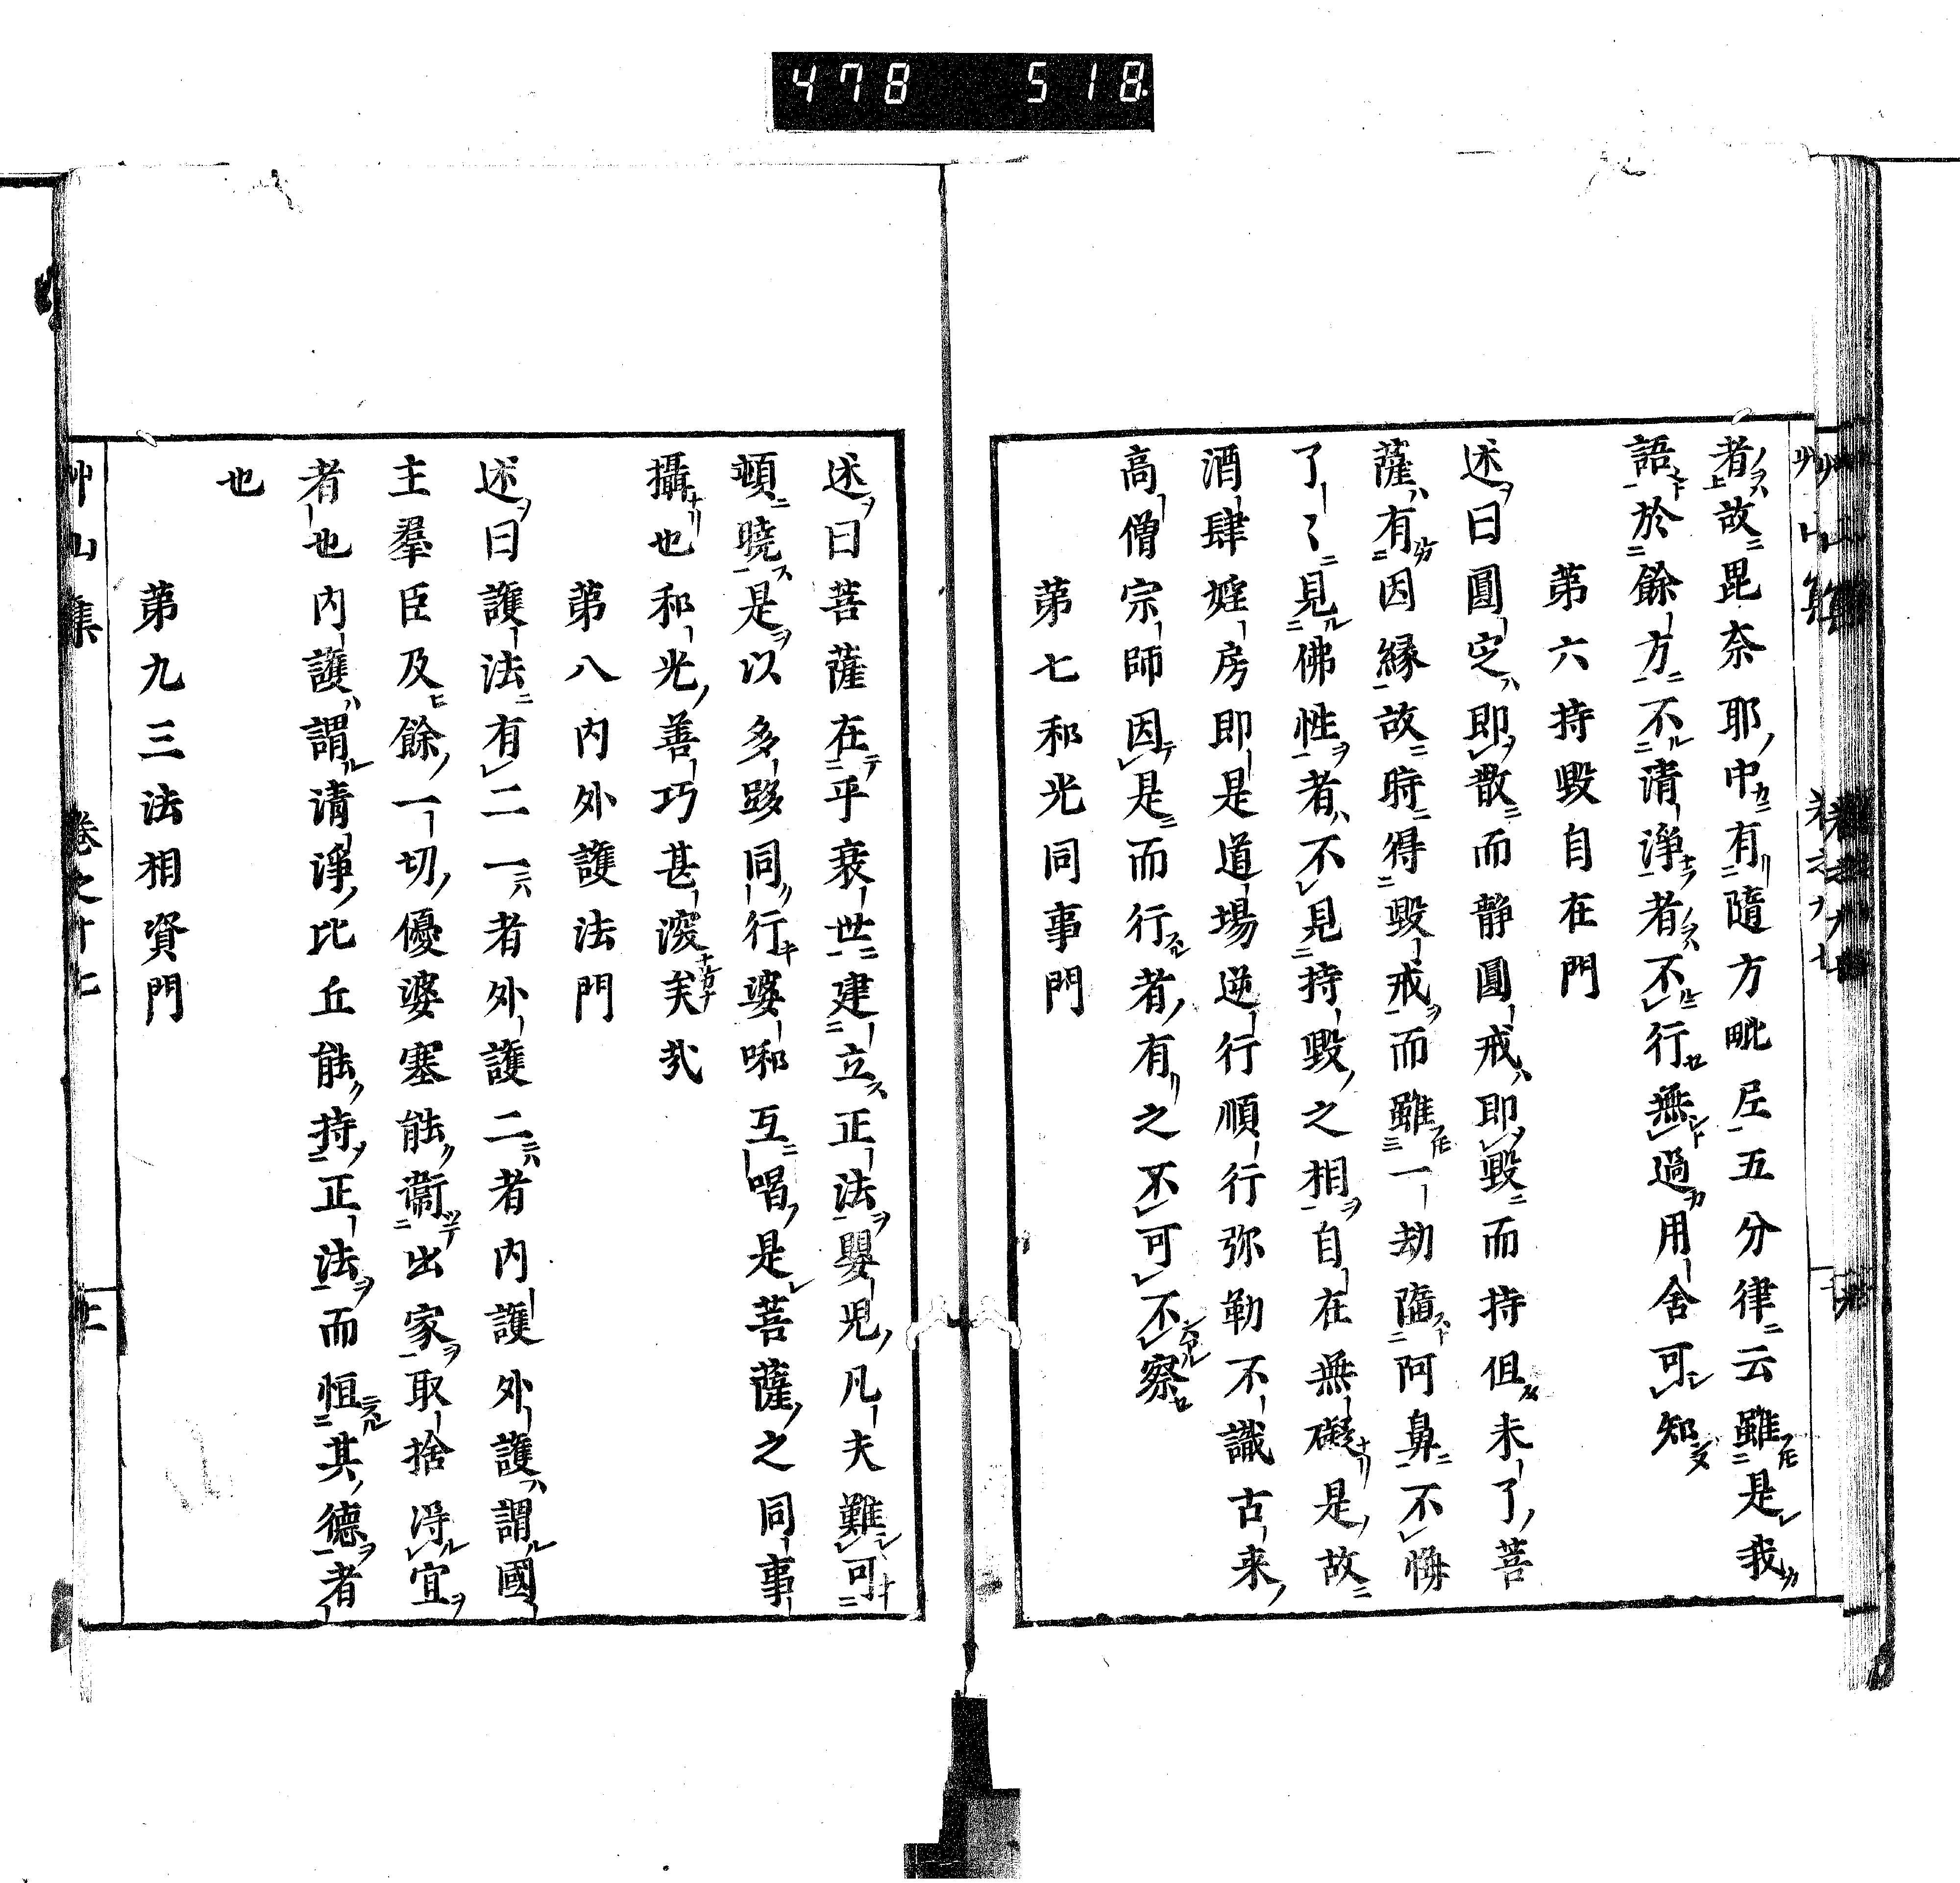 478 518
者故毘奈耶中有隨方毗尼五分律云雖是我
語於餘方不清淨者不行無過用舍可知
第六持毀自在門
述曰圓定即散而静圓戒即毀而持但未了菩
薩有因緣故時得毀戒而雖一劫墮阿鼻不悔
了了見佛性者不見持毀之相自在無礙是故
酒肆婬房即是道場逆行順行弥勒不識古来
高僧宗師因是而行者有之不可不察
第七和光同事門
述曰菩薩在乎衰世建立正法嬰児凡夫難可
頓曉是以多跢同行婆啝互唱是菩薩之同事
攝也和光善巧甚深矣哉
第八内外護法門
述曰護法有二一者外護二者内護外護謂國
主羣臣及餘一切優婆塞能衞出家取捨得宜
者也内護謂清淨比丘能持正法而恒其德者
也
第九三法相資門
艸山集 卷之十七